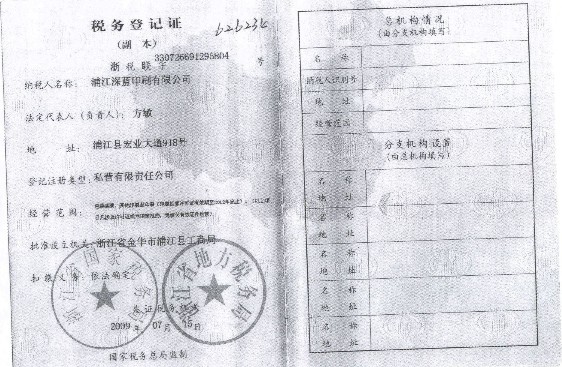 税务登记证
(副 本)
浙税联字
330726691295804
号
纳税人名称: 浦江深蓝印刷有限公司
法定代表人(负责人): 方敏
地 址: 浦江县宏业大道918号
登记注册类型: 私营有限责任公司
经营范围:
批准设立机关: 浙江省金华市浦江县工商局
扣缴义务: 依法确定
发证税务机关
2009 年 07 月 15 日
国家税务总局监制
浙江省国家税务局
浙江省地方税务局
总机构情况
(由分支机构填写)
名 称
纳税人识别号
地 址
经营范围
分支机构设置
(由总机构填写)
名 称
地 址
名 称
地 址
名 称
地 址
名 称
地 址
名 称
地 址